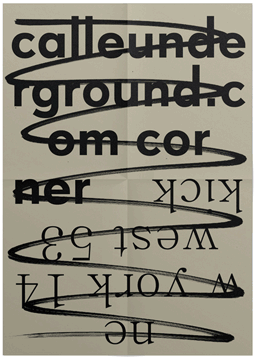 calleunde
rground.c
om cor
ner
ne
w york 14
west 53
kick